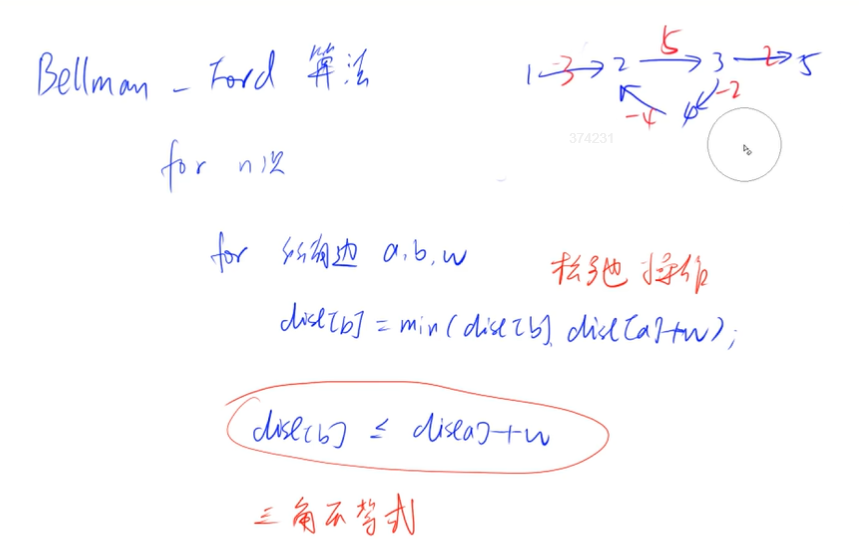 Bellman - Ford 算法
1 3 2 5 3 2 5
-4 4 -2
374231
for n次
for 所有边 a,b,w
松弛操作
dist[b] = min(dist[b], dist[a]+w);
dist[b] ≤ dist[a]+w
三角不等式